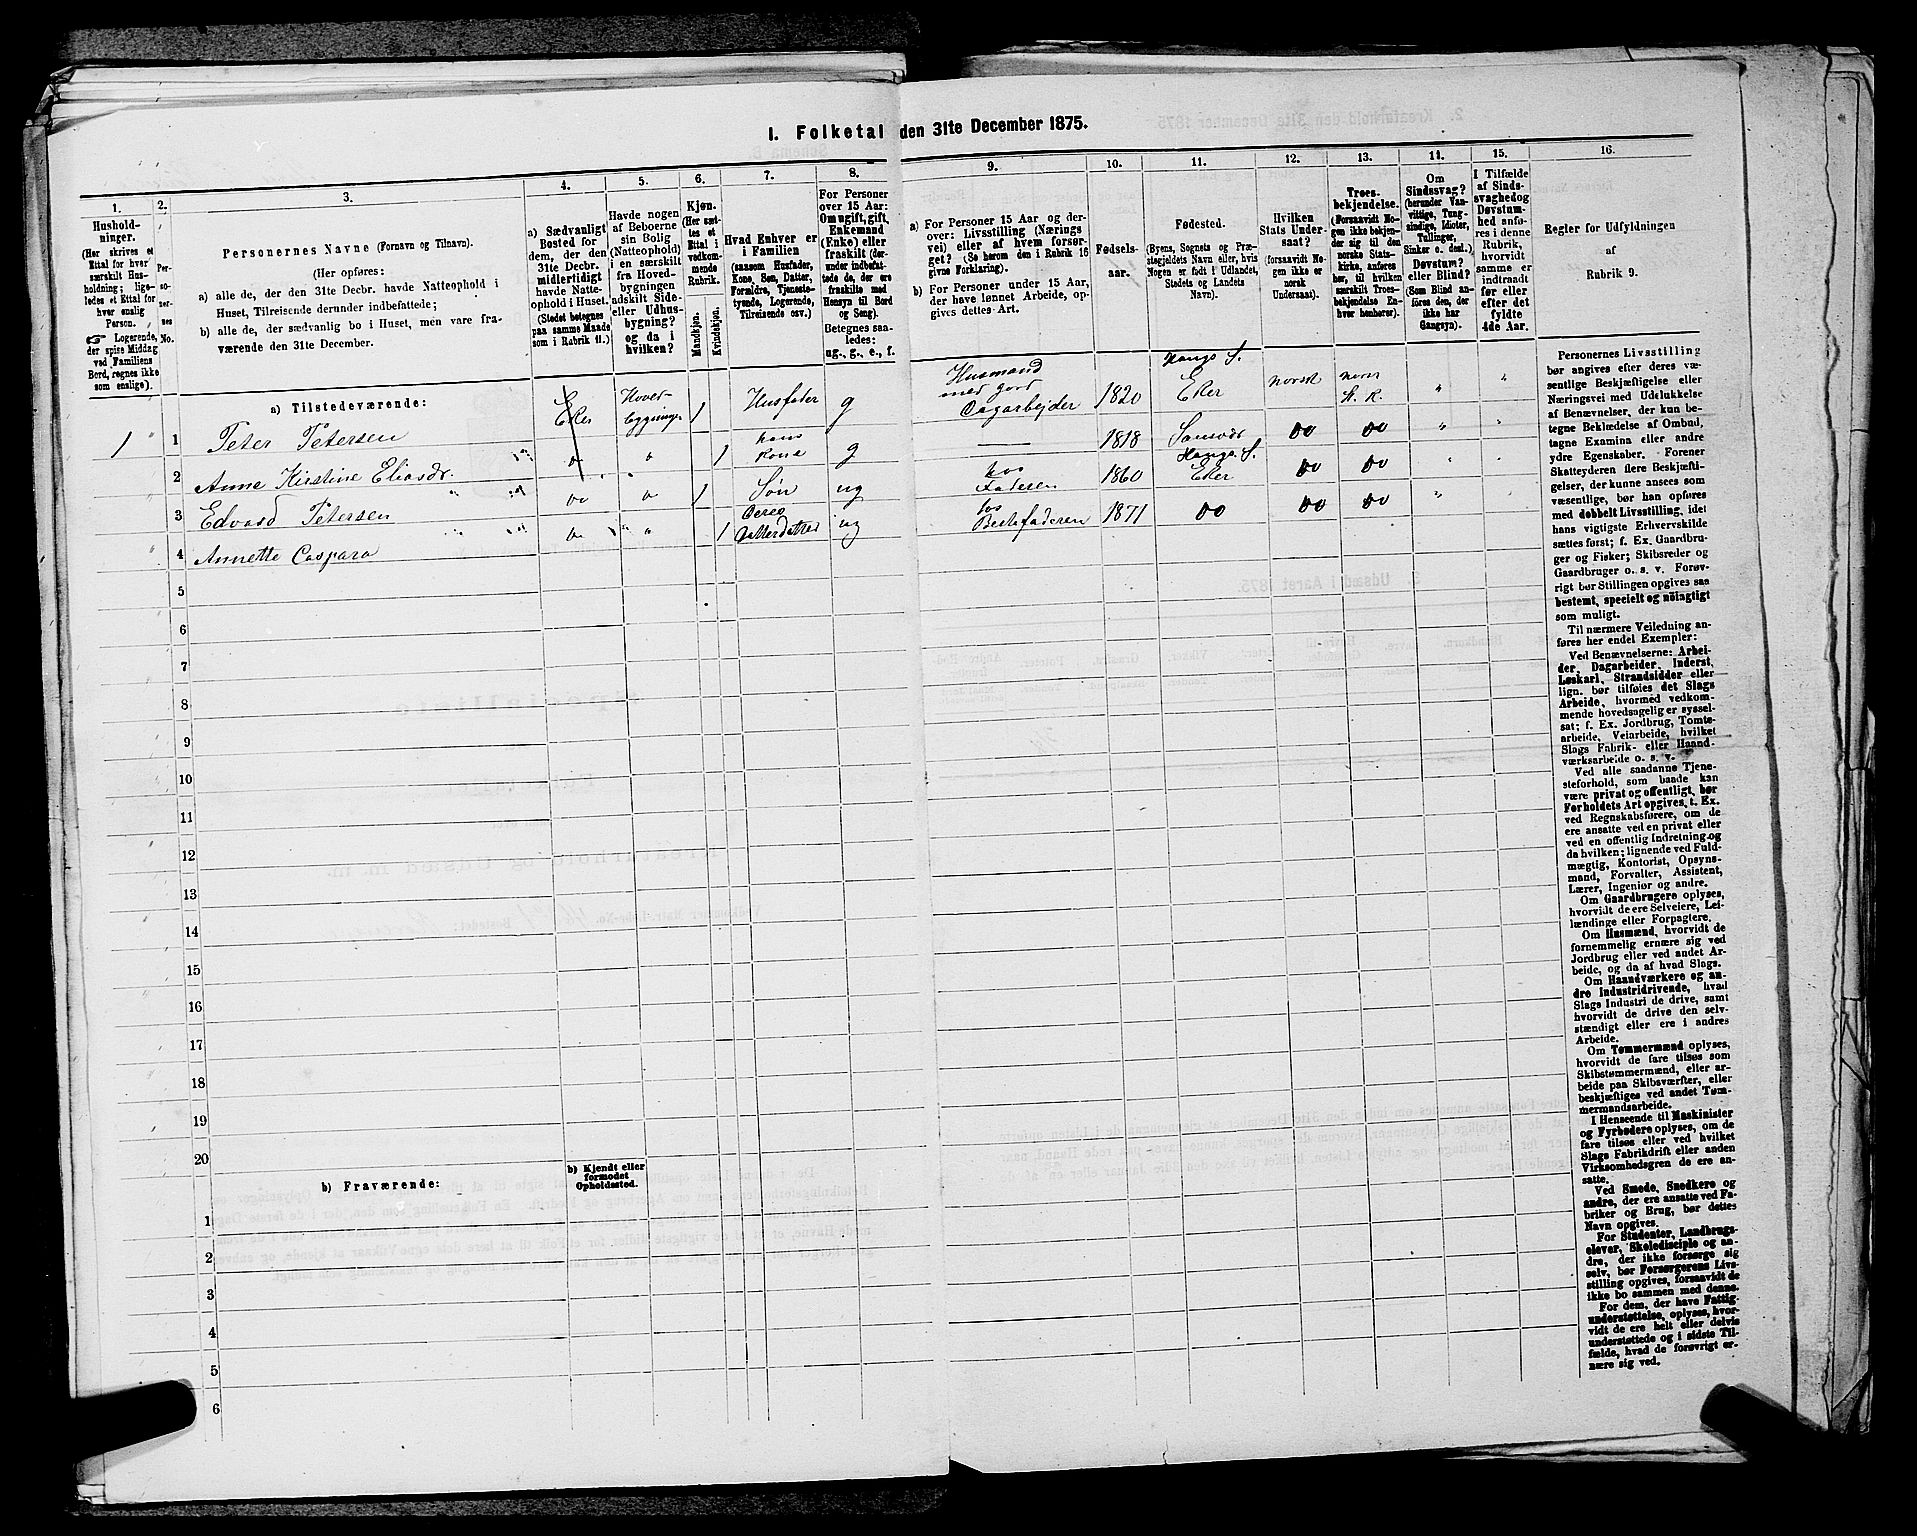 I. Folketal den 31te December 1875.
1.
2.
3.
4.
5.
6.
7.
8.
9.
10.
11.
12.
13.
14.
15.
16.
Hushold-
ninger.
(Her skrives et
Ettal for hver
særskilt Hus-
holdning; lige-
ledes et Ettal for
hver enslig
Person.
Logerende,
der spise Middag
ved Familiens
Bord, regnes ikke
som enslige).
Per-
so-
ner-
nes
No.
Personernes Navne (Fornavn og Tilnavn).
(Her opføres:
a) alle de, der den 31te Decbr. havde Natteophold i
Huset, Tilreisende derunder indbefattede;
b) alle de, der sædvanlig bo i Huset, men vare fra-
værende den 31te December.
a) Sædvanligt
Bosted for
dem, der den
31te Decbr.
midlertidigt
havde Natte-
ophold i Huset.
(Stedet betegnes
paa samme Maade
som i Rubrik 11.)
Havde nogen
af Beboerne
sin Bolig
(Natteophold)
i en særskilt
fra Hoved-
bygningen
adskilt Side-
eller Udhus-
bygning?
og da i
hvilken?
Kjøn.
(Her sæt-
tes et
Ettal i
vedkom-
mende
Rubrik.
Mandkjøn.
Kvindekjøn.
Hvad Enhver er
i Familien
(saasom Husfader,
Kone, Søn, Datter,
Forældre, Tjeneste-
tyende, Logerende,
Tilreisende osv.)
For Personer
over 15 Aar:
Om ugift, gift,
Enkemand
(Enke) eller
fraskilt (der-
under indbefat-
tede de, der ere
fraskilte med
Hensyn til Bord
og Seng).
Betegnes saa-
ledes:
ug., g., e., f.
a) For Personer 15 Aar og der-
over: Livsstilling (Nærings
vei) eller af hvem forsør-
get? (Se herom den i Rubrik 16
givne Forklaring).
b) For Personer under 15 Aar,
der have lønnet Arbeide, op-
gives dettes Art.
Fødsels-
aar.
Fødested.
(Byens, Sognets og Præ-
stegjeldets Navn eller, hvis
Nogen er født i Udlandet,
Stedets og Landets
Navn).
Hvilken
Stats Under-
saat?
(forsaavidt No-
gen ikke er
norsk
Undersaat).
Troes-
bekjendelse.
(Forsaavidt No-
gen ikke bekjen-
der sig til den
norske Stats-
kirke, anføres
her, til hvilken
særskilt Troes-
bekjendelse En-
hver henhører).
Om
Sindssvag?
(herunder Van-
vittige, Tung-
sindige, Idioter,
Tullinger,
Sinker o. desl.)
Døvstum?
eller Blind?
(Som Blind an-
føres den, der
ikke har
Gangsyn).
I Tilfælde
af Sinds-
svaghed og
Døvstum-
hed anfø-
res i denne
Rubrik,
hvorvidt
samme er
indtraadt
før eller
efter det
fyldte
4de Aar.
Regler for Udfyldningen
af
Rubrik 9.
a) Tilstedeværende:
1 1 Peter Petersen Eker Hoved-bygning 1 Husfader g Husmand med jord Dagarbejder 1820 Haugs S. Eker norsk norsk St. K. " "
2 Anne Kirstine Eliasdr. do " 1 hans Kone g — 1818 Sansvær do do " "
3 Edvard Petersen do do 1 Søn ug hos Faderen 1860 Haugs S. Eker do do " "
4 Annette Caspara do " 1 Deres Datterdatter ug hos Bestefaderen 1871 do do do " "
5
6
7
8
9
10
11
12
13
14
15
16
17
18
19
20
b) Fraværende:
b) Kjendt eller
formodet
Opholdssted.
1
2
3
4
5
6
Personernes Livsstilling
bør angives efter deres væ-
sentlige Beskjæftigelse eller
Næringsvei med Udelukkelse
af Benævnelser, der kun be-
tegne Beklædelse af Ombud,
tagne Examina eller andre
ydre Egenskaber. Forener
Skatteyderen flere Beskjæfti-
gelser, der kunne ansees som
væsentlige, bør han opføres
med dobbelt Livsstilling, idet
hans vigtigste Erhvervskilde
sættes først; f. Ex. Gaardbru-
ger og Fisker; Skibsreder og
Gaardbruger o. s. v. Forøv-
rigt bør Stillingen opgives saa
bestemt, specielt og nøiagtigt
som muligt.
Til nærmere Veiledning an-
føres her endel Exempler:
Ved Benævnelserne: Arbei-
der, Dagarbeider, Inderst,
Løskarl, Strandsidder eller
lign. bør tilføies det Slags
Arbeide, hvormed vedkom-
mende hovedsagelig er syssel-
sat; f. Ex. Jordbrug, Tomte-
arbeide, Veiarbeide, hvilket
Slags Fabrik- eller Haand-
værksarbeide o. s. v.
Ved alle saadanne Tjene-
steforhold, som baade kan
være privat og offentligt, bør
Forholdets Art opgives, t. Ex.
ved Regnskabsførere, om de
ere ansatte ved en privat eller
ved en offentlig Indretning og
da hvilken; lignende ved Fuld-
mægtig, Kontorist, Opsyns-
mand, Forvalter, Assistent,
Lærer, Ingeniør og andre.
Om Gaardbrugere oplyses,
hvorvidt de ere Selveiere, Lei-
lændinge eller Forpagtere.
Om Husmænd, hvorvidt de
fornemmelig ernære sig ved
Jordbrug eller ved andet Ar-
beide, og da af hvad Slags.
Om Haandværkere og an-
dre Industridrivende, hvad
Slags Industri de drive, samt
hvorvidt de drive den selv-
stændigt eller ere i andres
Arbeide.
Om Tømmermænd oplyses,
hvorvidt de fare tilsøs som
Skibstømmermænd, eller ar-
beide paa Skibsværfter, eller
beskjæftiges ved andet Tøm-
mermandsarbeide.
I Henseende til Maskinister
og Fyrbødere oplyses, om de
fare tilsøs eller ved hvilket
Slags Fabrikdrift eller anden
Virksomhedsgren de ere an-
satte.
Ved Smede, Snedkere og
andre, der ere ansatte ved Fa-
briker og Brug, bør dettes
Navn opgives.
For Studenter, Landbrugs-
elever, Skoledisciple og an-
dre, der ikke forsørge sig
selv, bør Forsørgerens Livs-
stilling opgives, forsaavidt de
ikke bo sammen med denne.
For dem, der have Fattig-
understøttelse, oplyses, hvor-
vidt de ere helt eller delvis
understøttede og i sidste Til-
fælde, hvad de forøvrigt er-
nære sig ved.